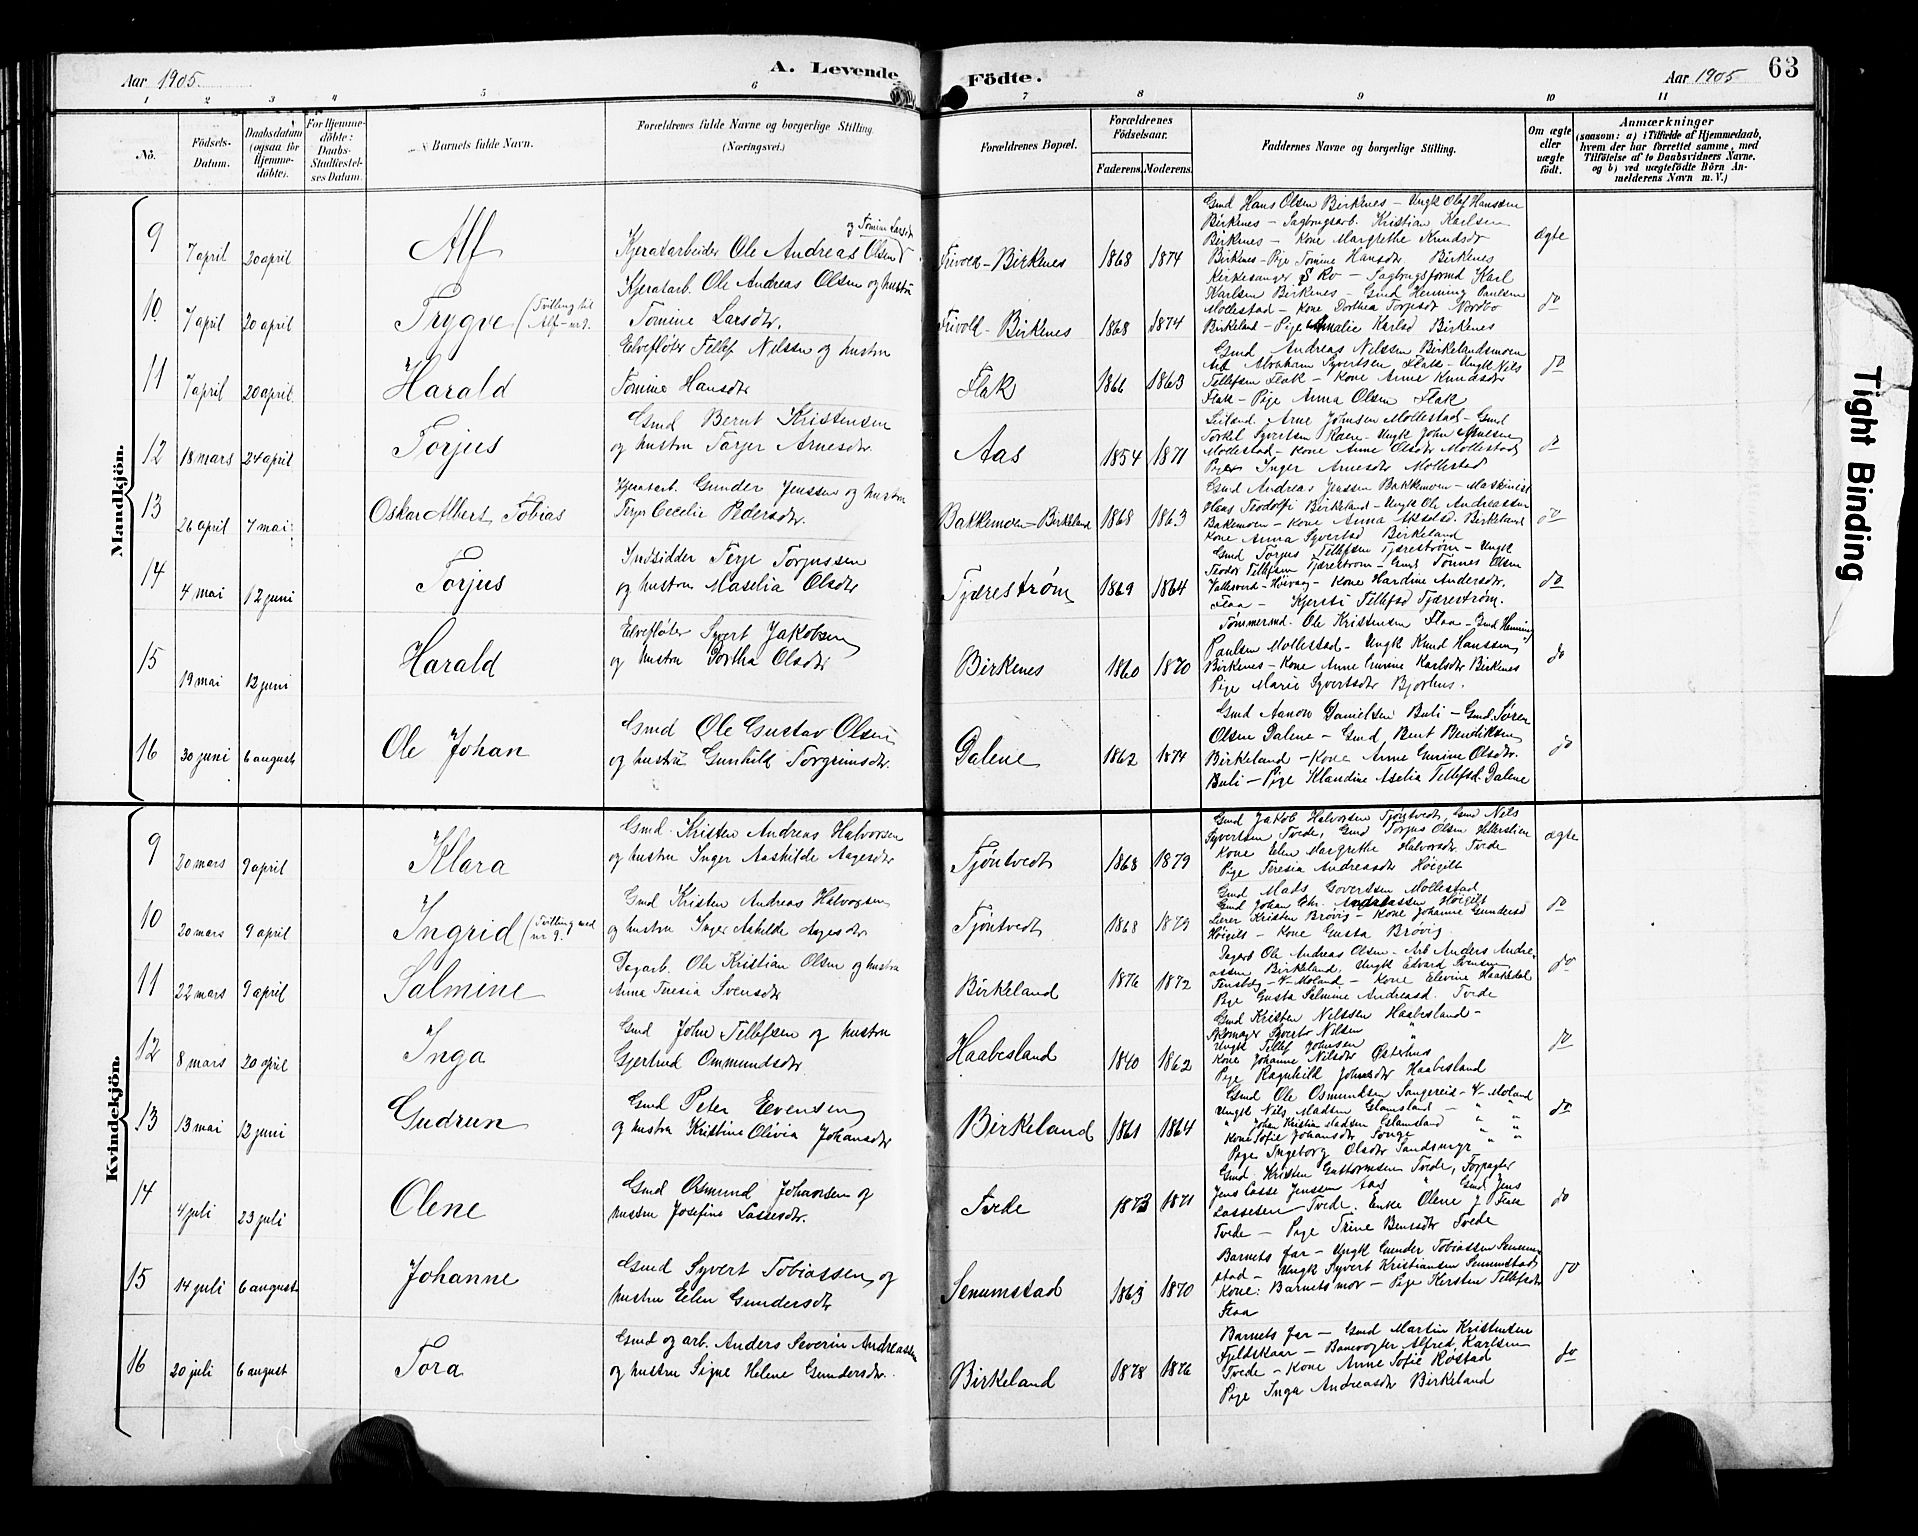 Aar 1905.
A. Levende Födte.
Aar 1905
63
1 2 3 4 5 6 7 8 9 10 11
No.
Födsels-Datum.
Daabsdatum (ogsaa for Hjemme-döbte).
For Hjemme-döbte: Daabs-Stadfæstel-ses Datum.
Barnets fulde Navn.
Forældrenes fulde Navne og borgerlige Stilling (Næringsvei.)
Forældrenes Bopæl.
Forældrenes Födselsaar.
Faderens. Moderens.
Faddernes Navne og borgerlige Stilling.
Om ægte eller uægte födt.
Anmærkninger
(saasom: a) i Tilfælde af Hjemmedaab, hvem der har forrettet samme, med Tilföielse af to Daabsvidners Navne, og b) ved uægtefödte Börn An-melderens Navn m. V.)
Mandkjön.
9 7 april 20 april Alf
Kjeratarbeider Ole Andreas Olsen og Tomine Larsdt
Tivold-Birkenes 1868 1874
Gmd Hans Olsen Birkenes - Ungk Olaf Hanssen
Birkenes - Sagbrugsarb. Kristian Karlsen
Birkenes - Kone Margrethe Knudsdt
Birkenes - Pige Tomine Hansdtr Birkenes
ægte
10 7 april 20 april Trygve (Tvilling til Alf - nr 9.
Kjeratarb. Ole Andreas Olsen og hustru
Tomine Larsdtr.
Tivold-Birkenes 1868 1874
Kirkesanger S Ro - Sagbrugsformd Karl
Karlsen Birkenes - Gmd Henning Paulsen
Mollestad - Kone Dorthea Torjusdt Nordbø
Birkeland - Pige Amalie Karlsd Birkenes
do
11 7 april 20 april. Harald
Elvefløter Tellef Nilssen og hustru
Tomine Hansdtr
Flak 1866 1863
Gmd Andreas Nilssen Birkelandsmoen
Arb Abraham Syvertsen Flak - Ungk Nils
Tellefsen Flak - Kone Anne Knudsdtr
Flak - Pige Anna Olsen Flak
do
12 18 mars 24 april Torjus
Gmd Bernt Kristensen
og hustru Tarjer Arnesdtr.
Aas 1854 1871
Arne Johnsen Mollestad - Gmd
Torkel Syvertsen - Ungk John Arnesen
Mollestad - Kone Anne Olsdtr Mollestad
Pige Inger Arnesdtr Mollestad
do
13 26 april 7 mai Oskar Albert Tobias
Kjeratarb. Gunder Jenssen og hustru
Terjer Cecelie Pedersdtr.
Bakkemoen-Birkeland 1868 1863
Gmd Andreas Jenssen Bakkemoen - Maskinist
Hans Teodolfi Birkeland - Ungk Ole Andreassen
Bakemoen - Kone Anna Akselsd. Birkeland
Kone Anna Syvertsd Birkeland
do
14 4 mai 12 juni Torjus
Indsidder Terje Torjussen
og hustru Maselia Olsdtr
Tjærestrøm 1869 1864
Gmd Torjus Tellefsen Tjærestrøm - Ungk
Teodor Tellefsen Tjærestrøm - Gmd Tønnes Olsen
Vallesverd - Høivaag - Kone Hardine Andersdtr.
Flaa - Kjersti Tellefsd Tjærestrøm.
do
15 19 mai 12 juni Harald
Elvefløter Syvert Jakobsen
og hustru Dortha Olsdtr
Birkenes 1860 1870
Tømmermd. Ole Kristensen Flaa - Gmd Henning
Paulsen Mollestad - Ungk Knud Hanssen
Birkenes - Kone Anne Gurine Karlsdtr Birkenes
Pige Marie Syvertsdtr Bjorhus.
do
16 30 juni 6 august Ole Johan
Gmd Ole Gustav Olsen
og hustru Gunhild Torgrimsdtr.
Dalene 1862 1874
Gmd Aanon Danielsen Buli - Gmd. Søren
Olsen Dalene - Gmd Bent Bendiksen
Birkeland - Kone Anne Gurine Olsdtr.
Buli - Pige Klandine Aselia Tellefsd. Dalene
do
Kvindekjön.
9 20 mars 9 april Klara
Gmd. Kristen Andreas Halvorsen
og hustru Inger Aashilde Aagesdtr
Tjøntvedt 1868 1879
Gmd Jakob Halvorsen Tjøntvedt, Gmd Nils
Syvertsen Tvede, Gmd Torjus Olsen
Kone Elen Margrethe Halvorsdtr. Tvede
Pige Teresia Andreasdtr Høigilt
ægte
10 20 mars 9 april Ingrid (Tvilling med nr 9.
Gmd Kristen Andreas Halvorsen
og hustru Inger Ashilde Aagesdtr
Tjøntvedt 1868 1879
Gmd Mads Govertsen Mollestad
Gmd Johan Chr. Andreassen Høigilt
Lærer Kristen Brøvig - Kone Johanne Gundersd
Høigilt - Kone Gusta Brøvig
do
11 22 mars 9 april Salmine
Dagarb. Ole Kristian Olsen og hustru
Anna Teresia Svensdtr
Birkeland 1876 1872
Dagarb Ole Andreas Olsen - Arb Anders Andre-
assen Birkeland, Ungk Edvard Svensen
V-Moland - Kone Elevine Haakedal
Pige Gusta Salmine Andreasd. Tvede
do
12 8 mars 20 april Inga
Gmd John Tellefsen og hustru
Gjertrud Ommundsdtr.
Haabesland 1840 1862
Gmd Kristen Nelssen Haabesland -
Skomager Syvert Nilsen "
Ungk Tellef Johnsen
Kone Johanne Nilsdtr Østerhus
Pige Ragnhild Johnsdtr Haabesland
do
13 13 mai 12 juni Gudrun
Gmd Peter Evensen
og hustru Kristine Olivia Johansdtr
Birkeland 1861 1864
Gmd Ole Osmundsen Sangereid - V-Moland
Ungk Nils Madsen Glamsland - " "
" Johan Kristian Madsen Glamsland " "
Kone Sofie Johansdtr Songe " "
Pige Ingeborg Olsdtr Sandsmyr
do
14 4 juli 23 juli Olene
Gmd Osmund Johansen og
hustru Josefine Lassesdtr.
Tvede 1873 1871
Gmd. Kristen Guttormsen Tvede, Forpagter
Jens Lasse Jenssen Aas " Gmd Jens
Lassesen - Tvede. Enke Olene J Flaa
Tvede - Pige Trine Bensdtr Tvede
do
15 14 juli 6 august Johanne
Gmd Syvert Tobiassen og
hustru Elen Gundersdtr
Senumstad 1863 1870
Barnets far - Ungk Gunder Tobiassen Senum-
stad - Ungk Syvert Kristiansen Senumstad
Kone: Barnets mor - Pige Kersten Tellefsdtr
Flaa
do
16 20 juli 6 august Tora
Gmd og arb. Anders Severin Andreassen
og hustru Signe Helene Gundersdtr.
Birkeland 1878 1876
Barnets far - Gmd Martin Kristensen
Fjeldskaar - Banevogter Alfred Karlsen
Tvede - Kone Anne Sofie Rostad
Pige Inga Andreasdtr Birkeland
do
Tight Binding